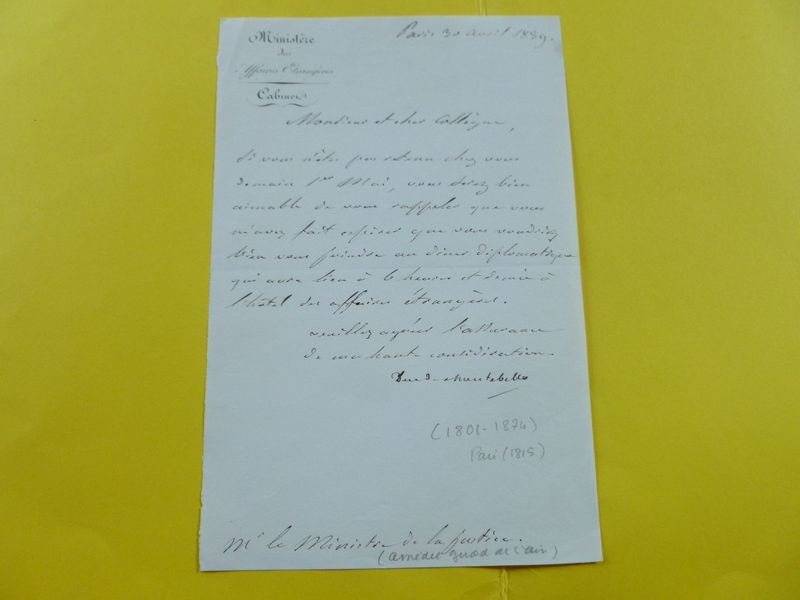 Ministère
des
Affaires Etrangères
Cabinet
Paris 30 avril 1839.
Monsieur et cher Collègue,
Si vous n'êtes pas retenu chez vous
demain 1er Mai, vous serez bien
aimable de vous rappeler que vous
m'avez fait espérer que vous voudriez
bien vous joindre au diner diplomatique
qui aura lieu à 6 heures et demie à
l'hôtel des affaires étrangères.
veuillez agréer l'assurance
de ma haute considération
Duc de Montebello
(1801-1874)
Pair (1815)
Mr le Ministre de la justice.
(Amédée Girod de l'ain)